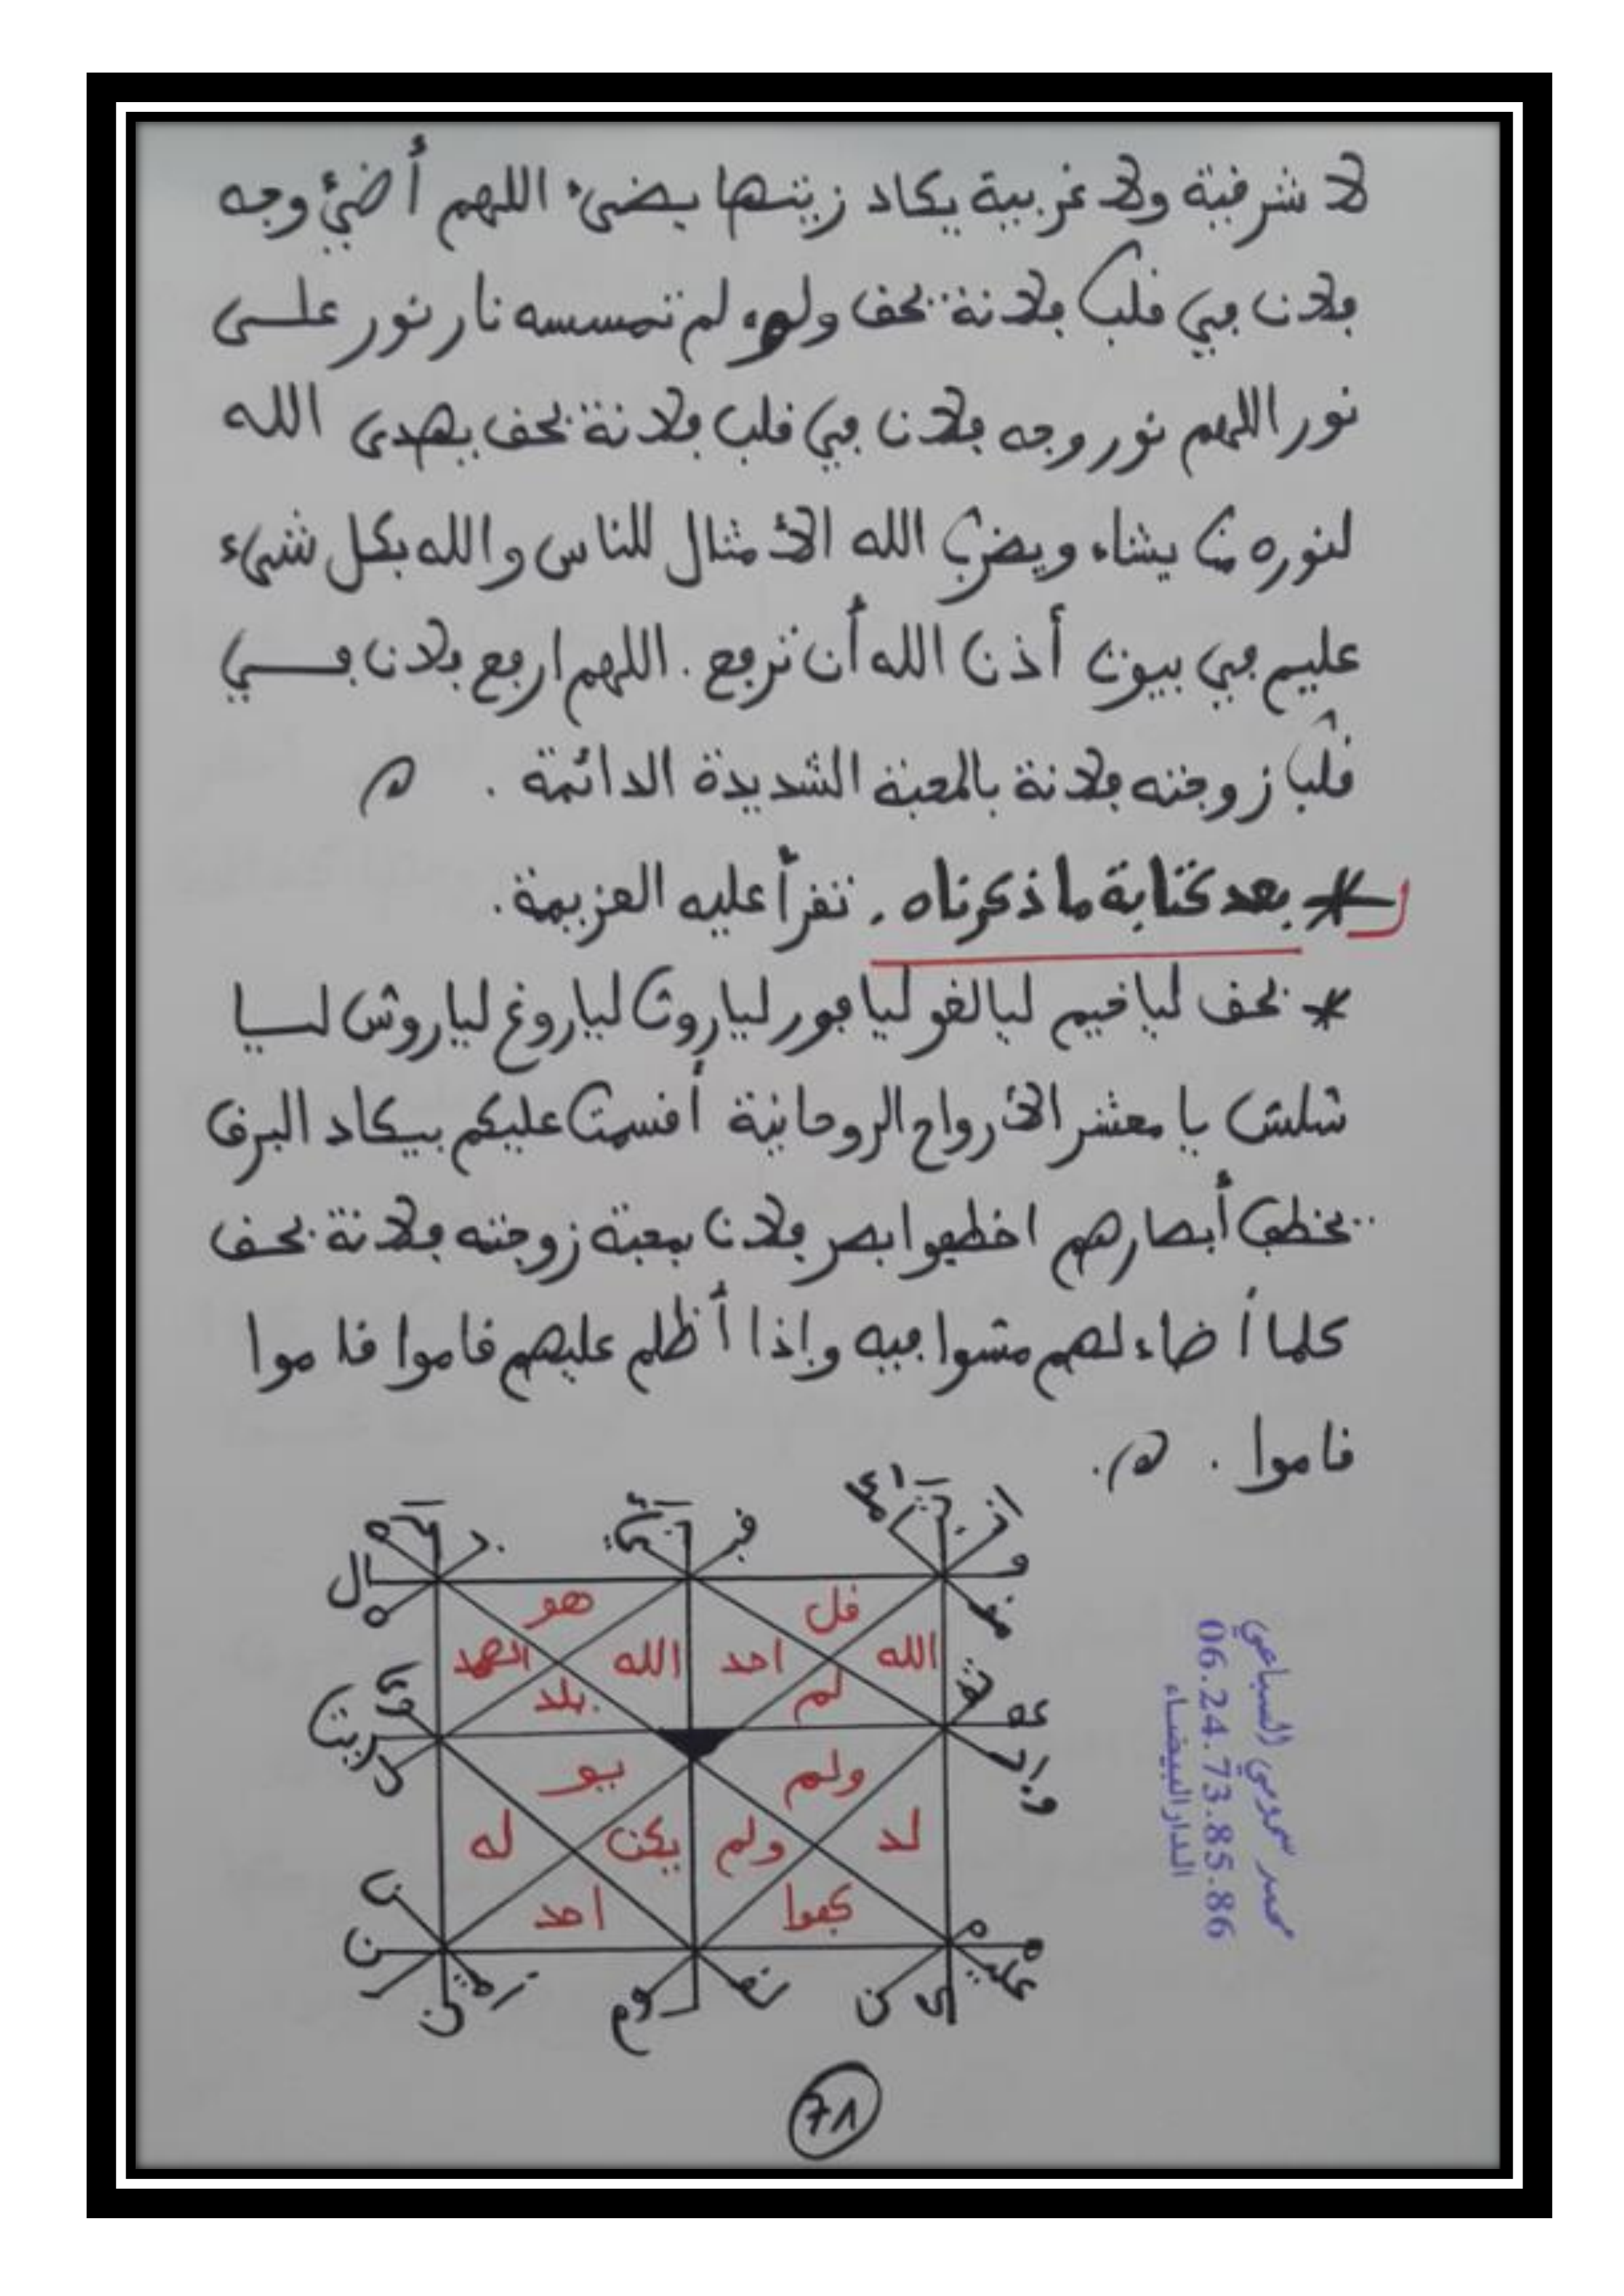 لا شرقية ولا غربية يكاد زيتها يضيء اللهم أضئ وجه
فلان في قلب فلانة بحق ولو لم تمسسه نار نور على
نور اللهم نور وجه فلان في قلب فلانة بحق يهدى الله
لنوره من يشاء ويضرب الله الأمثال للناس والله بكل شيء
عليم في بيوت أذن الله أن ترفع . اللهم ارفع فلان في
قلب زوجته فلانة بالمحبة الشديدة الدائمة . ه
* بعد كتابة ما ذكرناه . تقرأ عليه العزيمة .
* بحق ليافيم ليالغو ليافور لياروث لياروغ لياروش ليا
شلش يا معشر الأرواح الروحانية أقسمت عليكم بيكاد البرق
يخطف أبصارهم اخطفوا بصر فلان بمحبة زوجته فلانة بحق
كلما أضاء لهم مشوا فيه وإذا أظلم عليهم قاموا قاموا
قاموا . ه .
هو
قل
الصمد
الله
احد
الله
يلد
لم
يو
ولم
له
يكن
ولم
لد
احد
كفوا
محمد سمومي السباعي
06.24.73.85.86
الدار البيضاء
71